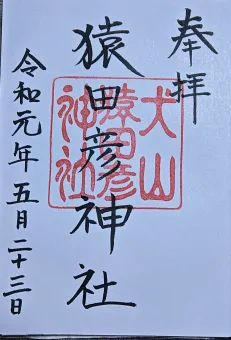 奉拝
猿田彦神社
犬山
猿田彦
神社
令和元年五月二十三日